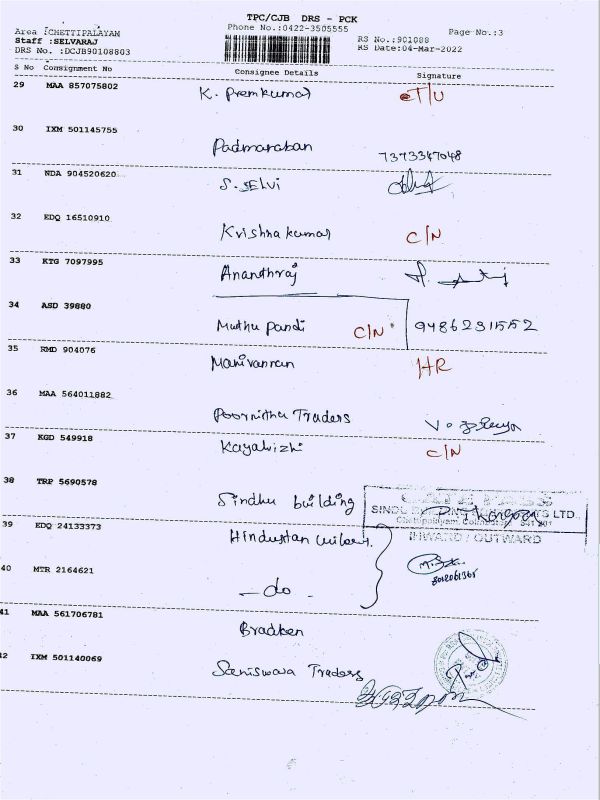 TPC/CJB DRS - PCK
Phone No.:0422-3505555
Area :CHETTIPALAYAM
Staff :SELVARAJ
DRS No. :DCJB90108803
RS No.:901088
RS Date:04-Mar-2022
Page No.:3
S No Consignment No Consignee Details Signature
29 MAA 857075802 K. Premkumar
30 IXM 501145755 Padmaraban 7373347048
31 NDA 904520620 S. SELVI
32 EDQ 16510910 Krishna kumar C/N
33 KTG 7097995 Ananthraj
34 ASD 39880 Muthu Pandi C/N 9486231552
35 RMD 904076 Manivannan HR
36 MAA 564011882 Poornitha Traders
37 KGD 549918 Kayalvizhi C/N
38 TRP 5690578 Sindhu building
39 EDQ 24133373 Hindustan
INWARD / OUTWARD
40 MTR 2164621 - do -
41 MAA 561706781 Bradken
42 IXM 501140069 Saniswara Traders